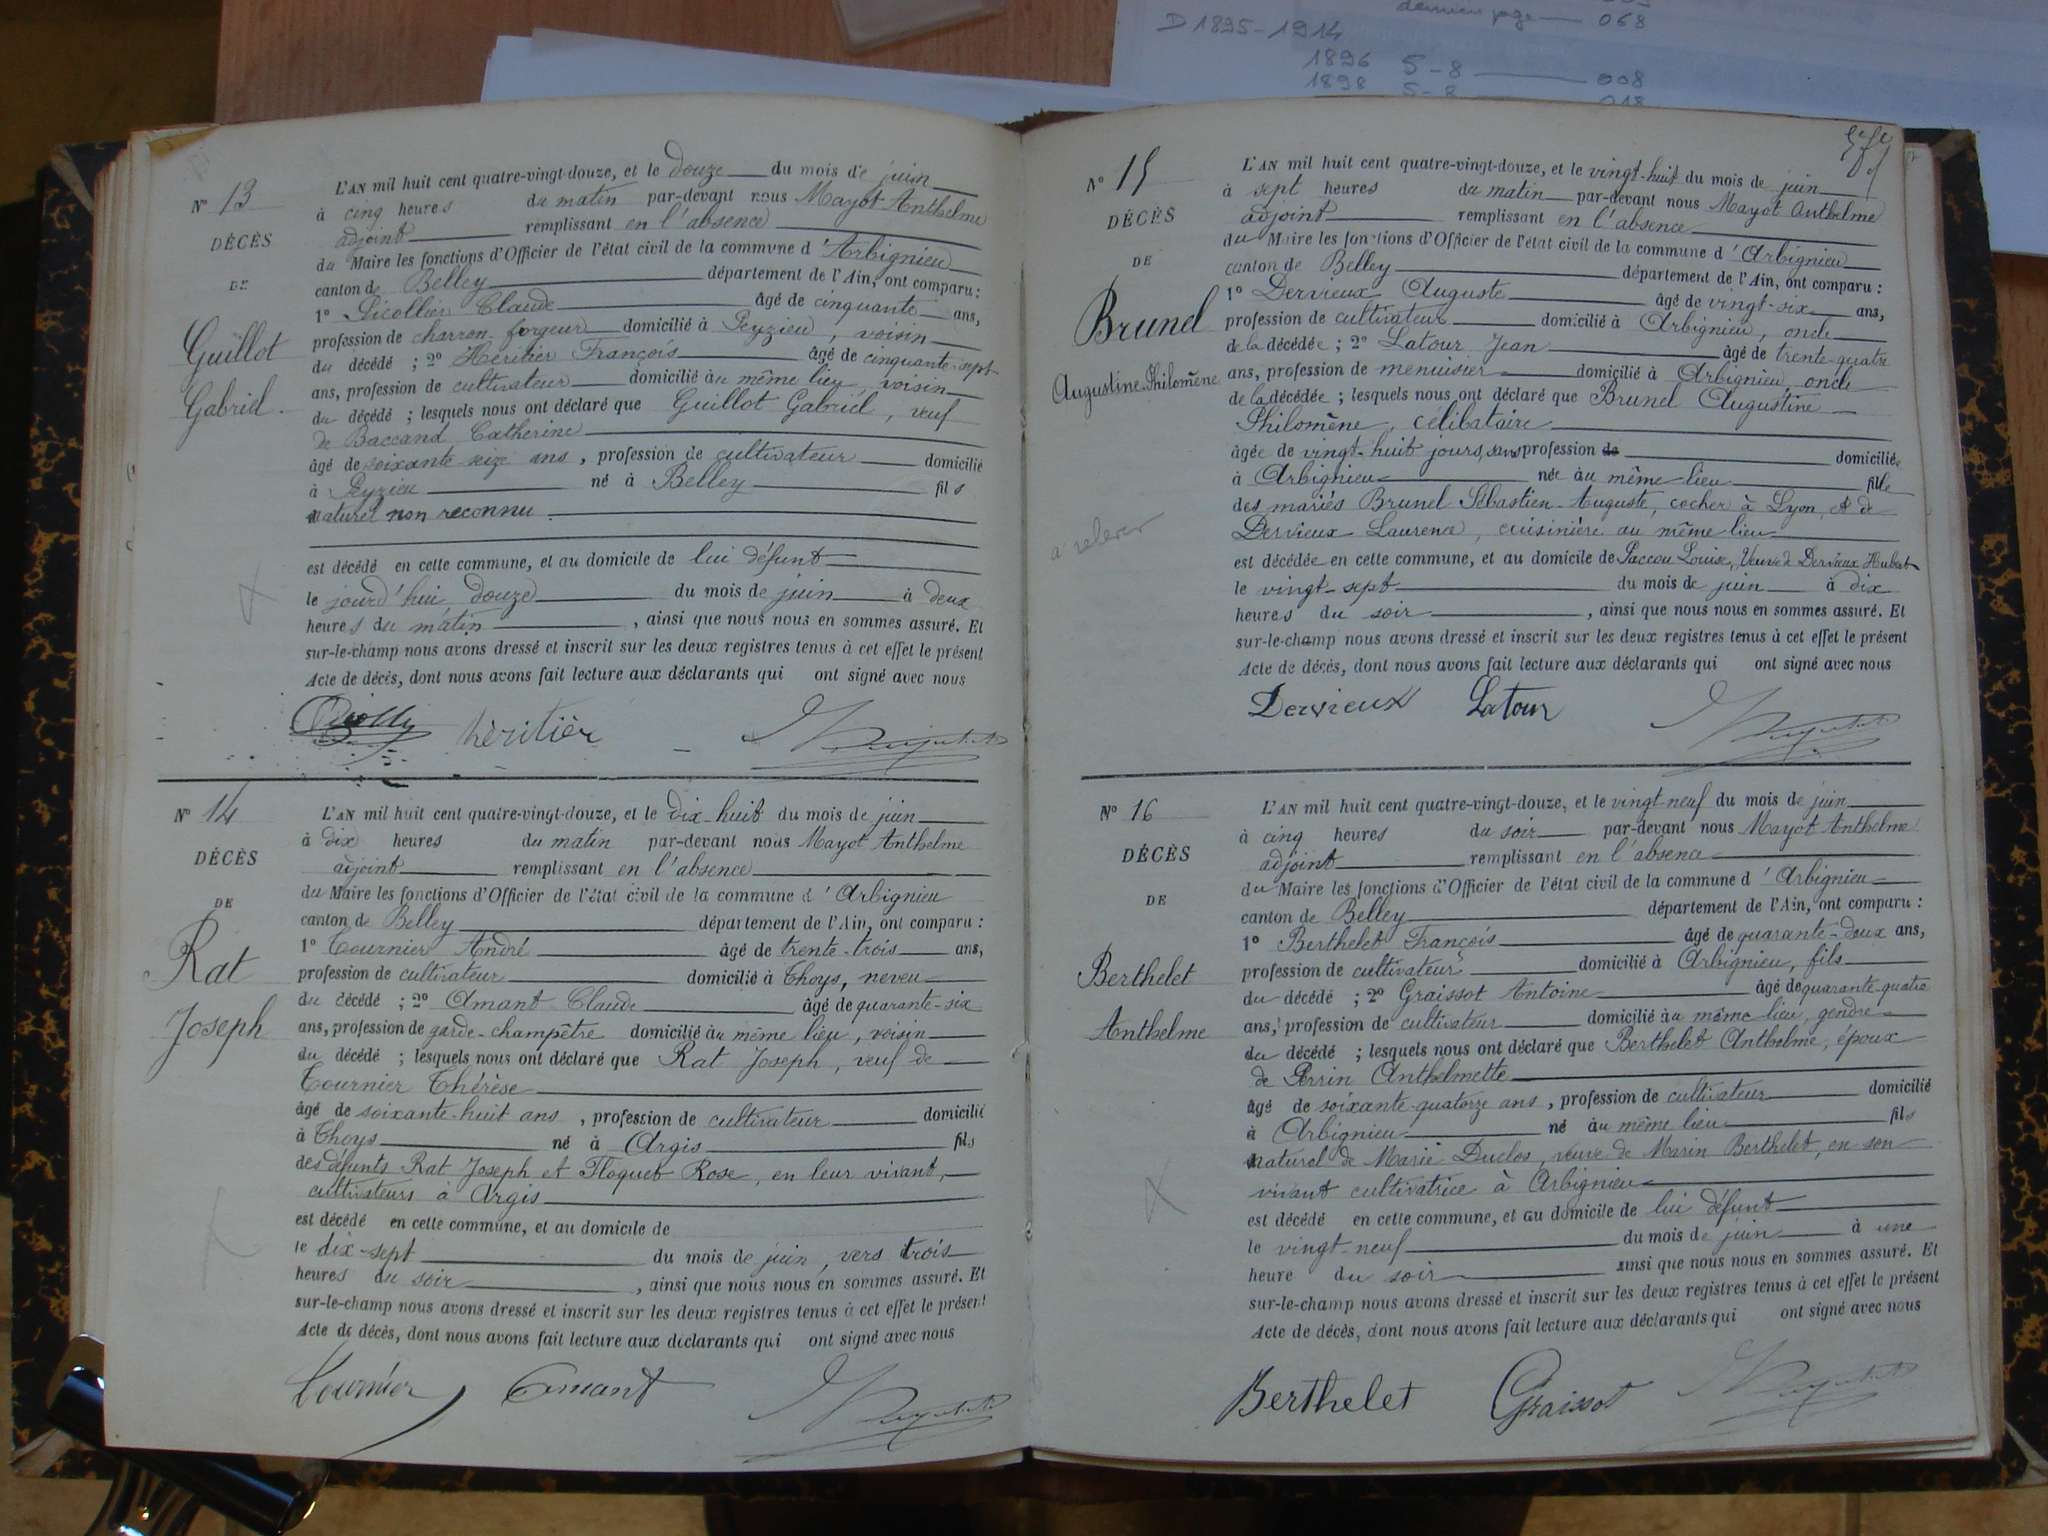 dernière page — 068
D 1895-1914
1896 5-8 — 008
1898 5-8 — 018
N° 13
DÉCÈS
DE
Guillot
Gabriel.
L'AN mil huit cent quatre-vingt-douze, et le douze du mois de juin
à cinq heures du matin par-devant nous Mayot Anthelme
adjoint remplissant en l'absence
du Maire les fonctions d'Officier de l'état civil de la commune d'Arbignieu
canton de Belley département de l'Ain, ont comparu :
1° Sicollier Claude âgé de cinquante ans,
profession de charron forgeur domicilié à Peyzieu, voisin
du décédé ; 2° Héritier François âgé de cinquante-sept
ans, profession de cultivateur domicilié au même lieu, voisin
du décédé ; lesquels nous ont déclaré que Guillot Gabriel, veuf
de Baccand Catherine
âgé de soixante seize ans, profession de cultivateur domicilié
à Peyzieu né à Belley fils
naturel non reconnu
est décédé en cette commune, et au domicile de lui défunt
le jourd'hui douze du mois de juin à deux
heures du matin, ainsi que nous nous en sommes assuré. Et
sur-le-champ nous avons dressé et inscrit sur les deux registres tenus à cet effet le présent
Acte de décès, dont nous avons fait lecture aux déclarants qui ont signé avec nous
héritièr
N° 14
DÉCÈS
DE
Rat
Joseph
L'AN mil huit cent quatre-vingt-douze, et le dix-huit du mois de juin
à dix heures du matin par-devant nous Mayot Anthelme
adjoint remplissant en l'absence
du Maire les fonctions d'Officier de l'état civil de la commune d'Arbignieu
canton de Belley département de l'Ain, ont comparu :
1° Tournier André âgé de trente-trois ans,
profession de cultivateur domicilié à Thoys, neveu
du décédé ; 2° Amant Claude âgé de quarante-six
ans, profession de garde-champêtre domicilié au même lieu, voisin
du décédé ; lesquels nous ont déclaré que Rat Joseph, veuf de
Tournier Thérèse
âgé de soixante-huit ans, profession de cultivateur domicilié
à Thoys né à Argis fils
des défunts Rat Joseph et Floquet Rose, en leur vivant,
cultivateurs à Argis
est décédé en cette commune, et au domicile de
le dix-sept du mois de juin, vers trois
heures du soir, ainsi que nous nous en sommes assuré. Et
sur-le-champ nous avons dressé et inscrit sur les deux registres tenus à cet effet le présent
Acte de décès, dont nous avons fait lecture aux déclarants qui ont signé avec nous
Tournier Amant
N° 15
DÉCÈS
DE
Brunel
Augustine Philomène
a relever
L'AN mil huit cent quatre-vingt-douze, et le vingt-huit du mois de juin
à sept heures du matin par-devant nous Mayot Anthelme
adjoint remplissant en l'absence
du Maire les fonctions d'Officier de l'état civil de la commune d'Arbignieu
canton de Belley département de l'Ain, ont comparu :
1° Dervieux Auguste âgé de vingt-six ans,
profession de cultivateur domicilié à Arbignieu, oncle
de la décédée ; 2° Latour Jean âgé de trente-quatre
ans, profession de menuisier domicilié à Arbignieu, oncle
de la décédée ; lesquels nous ont déclaré que Brunel Augustine
Philomène, célibataire
âgée de vingt-huit jours, sans profession de domiciliée
à Arbignieu née au même lieu fille
des mariés Brunel Sébastien Auguste, cocher à Lyon, et de
Dervieux Laurence, cuisinière au même lieu
est décédée en cette commune, et au domicile de Paccou Louise, Veuve de Dervieux Hubert
le vingt-sept du mois de juin à dix
heures du soir, ainsi que nous nous en sommes assuré. Et
sur-le-champ nous avons dressé et inscrit sur les deux registres tenus à cet effet le présent
Acte de décès, dont nous avons fait lecture aux déclarants qui ont signé avec nous
Dervieux Latour
N° 16
DÉCÈS
DE
Berthelet
Anthelme
L'AN mil huit cent quatre-vingt-douze, et le vingt neuf du mois de juin
à cinq heures du soir par-devant nous Mayot Anthelme
adjoint remplissant en l'absence
du Maire les fonctions d'Officier de l'état civil de la commune d'Arbignieu
canton de Belley département de l'Ain, ont comparu :
1° Berthelet François âgé de quarante-deux ans,
profession de cultivateur domicilié à Arbignieu, fils
du décédé ; 2° Graissot Antoine âgé de quarante-quatre
ans, profession de cultivateur domicilié au même lieu, gendre
du décédé ; lesquels nous ont déclaré que Berthelet Anthelme, époux
de Perrin Anthelmette
âgé de soixante-quatorze ans, profession de cultivateur domicilié
à Arbignieu né au même lieu fils
naturel de Marie Duclos, veuve de Marin Berthelet, en son
vivant cultivatrice à Arbignieu
est décédé en cette commune, et au domicile de lui défunt
le vingt-neuf du mois de juin à une
heure du soir ainsi que nous nous en sommes assuré. Et
sur-le-champ nous avons dressé et inscrit sur les deux registres tenus à cet effet le présent
Acte de décès, dont nous avons fait lecture aux déclarants qui ont signé avec nous
Berthelet Graissot